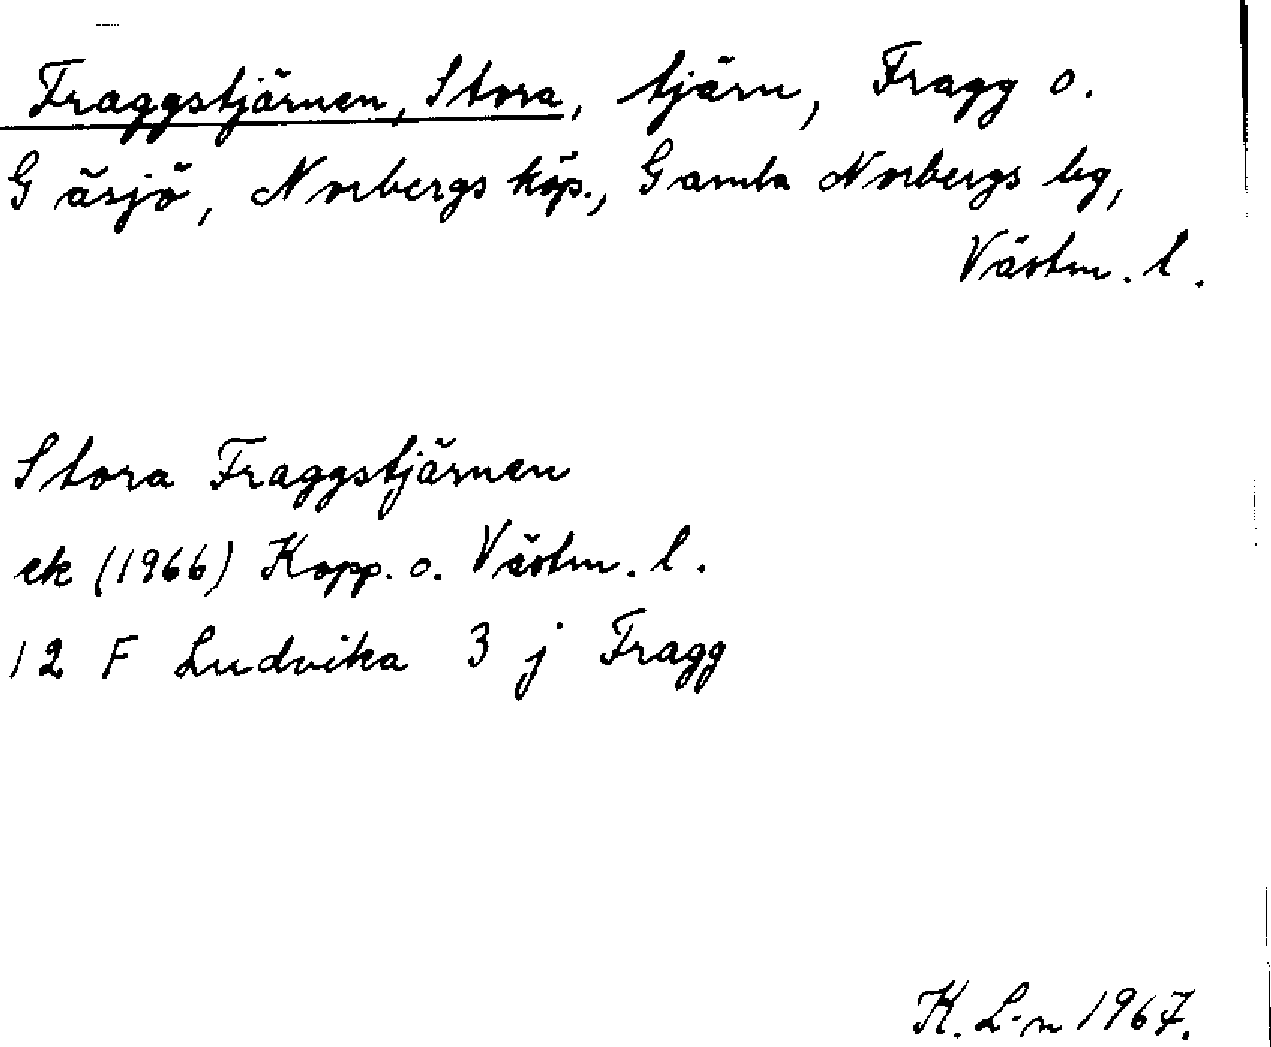 Fraggstjärnen, Stora, tjärn, Fragg o.
Gäsjö, Norbergs köp., Gamla Norbergs bg,
Västm. l.
Stora Fraggstjärnen
ek (1966) Kopp. o. Västm. l.
12 F Ludvika 3 j Fragg
K. L-n 1967.